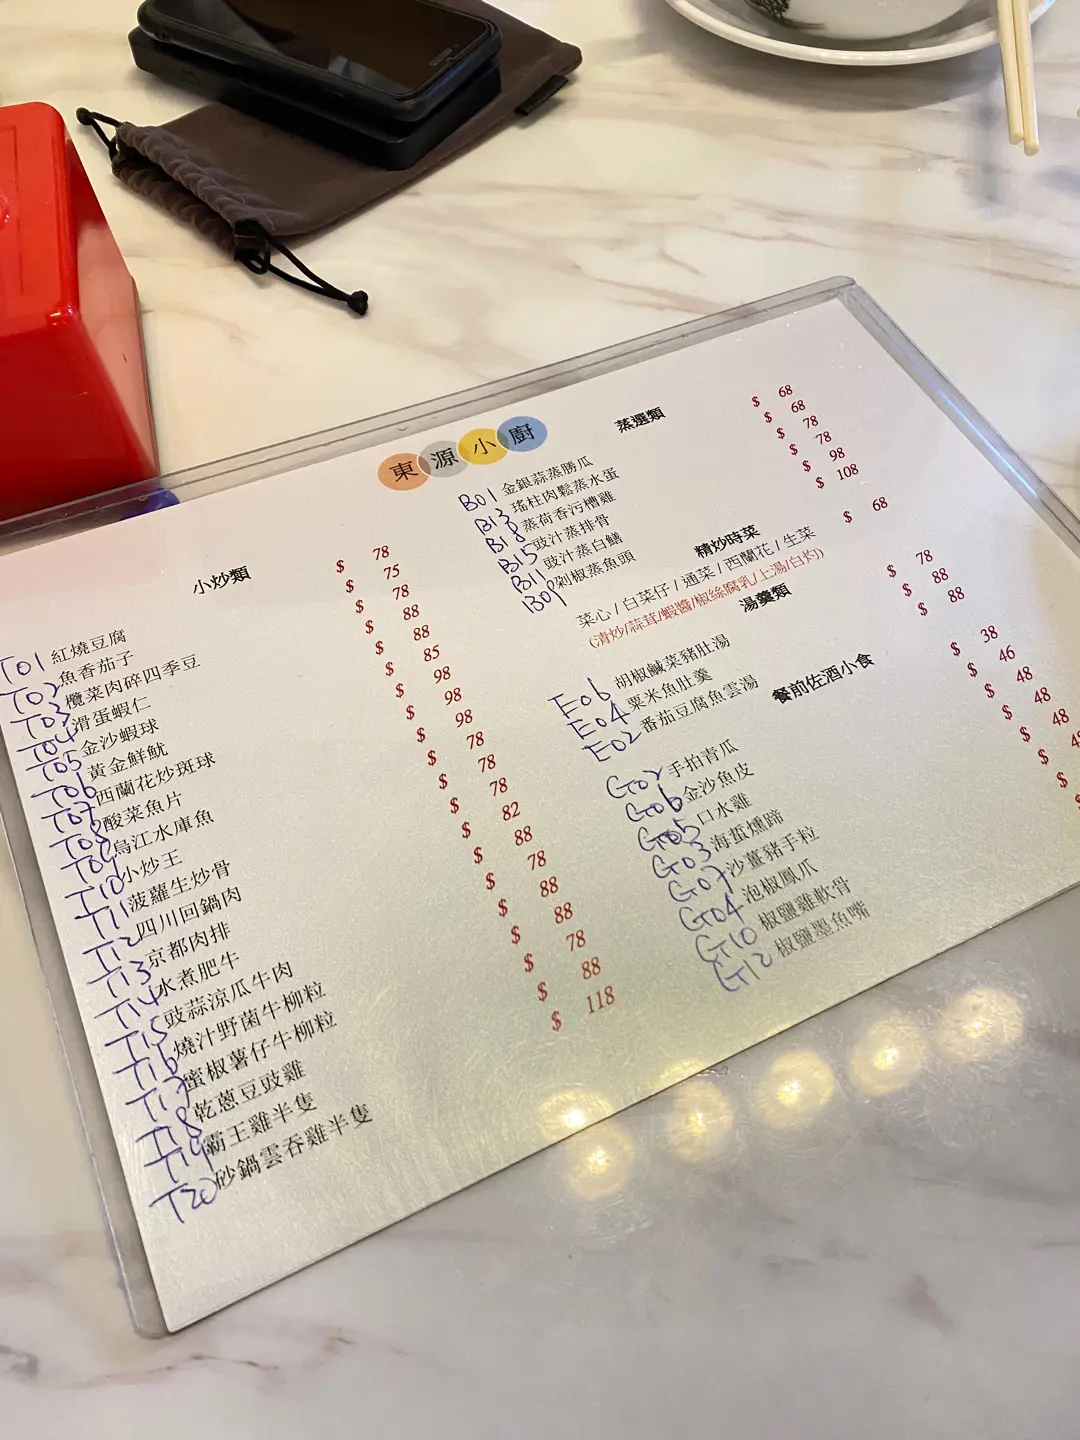 東源小廚
小炒類
T01 紅燒豆腐 $ 78
T02 魚香茄子 $ 75
T03 欖菜肉碎四季豆 $ 78
T04 滑蛋蝦仁 $ 88
T05 金沙蝦球 $ 88
T06 黃金鮮魷 $ 85
T07 西蘭花炒斑球 $ 98
T08 酸菜魚片 $ 98
T09 烏江水庫魚 $ 98
T10 小炒王 $ 78
T11 菠蘿生炒骨 $ 78
T12 四川回鍋肉 $ 78
T13 京都肉排 $ 82
T14 水煮肥牛 $ 88
T15 豉蒜涼瓜牛肉 $ 78
T16 燒汁野菌牛柳粒 $ 88
T17 蜜椒薯仔牛柳粒 $ 88
T18 乾蔥豆豉雞 $ 78
T19 霸王雞半隻 $ 88
T20 砂鍋雲吞雞半隻 $ 118
蒸選類
B01 金銀蒜蒸勝瓜 $ 68
B13 瑤柱肉鬆蒸水蛋 $ 68
B18 蒸荷香污槽雞 $ 78
B15 豉汁蒸排骨 $ 78
B11 豉汁蒸白鱔 $ 98
B09 剁椒蒸魚頭 $ 108
精炒時菜
菜心 / 白菜仔 / 通菜 / 西蘭花 / 生菜 $ 68
(清炒/蒜茸/蝦醬/椒絲腐乳/上湯/白灼)
湯羹類
E06 胡椒鹹菜豬肚湯 $ 78
E04 粟米魚肚羹 $ 88
E02 番茄豆腐魚雲湯 $ 88
餐前佐酒小食
G02 手拍青瓜 $ 38
G06 金沙魚皮 $ 46
G05 口水雞 $ 48
G03 海蜇燻蹄 $ 48
G07 沙薑豬手粒 $ 48
G04 泡椒鳳爪 $
G10 椒鹽雞軟骨 $
G12 椒鹽墨魚嘴